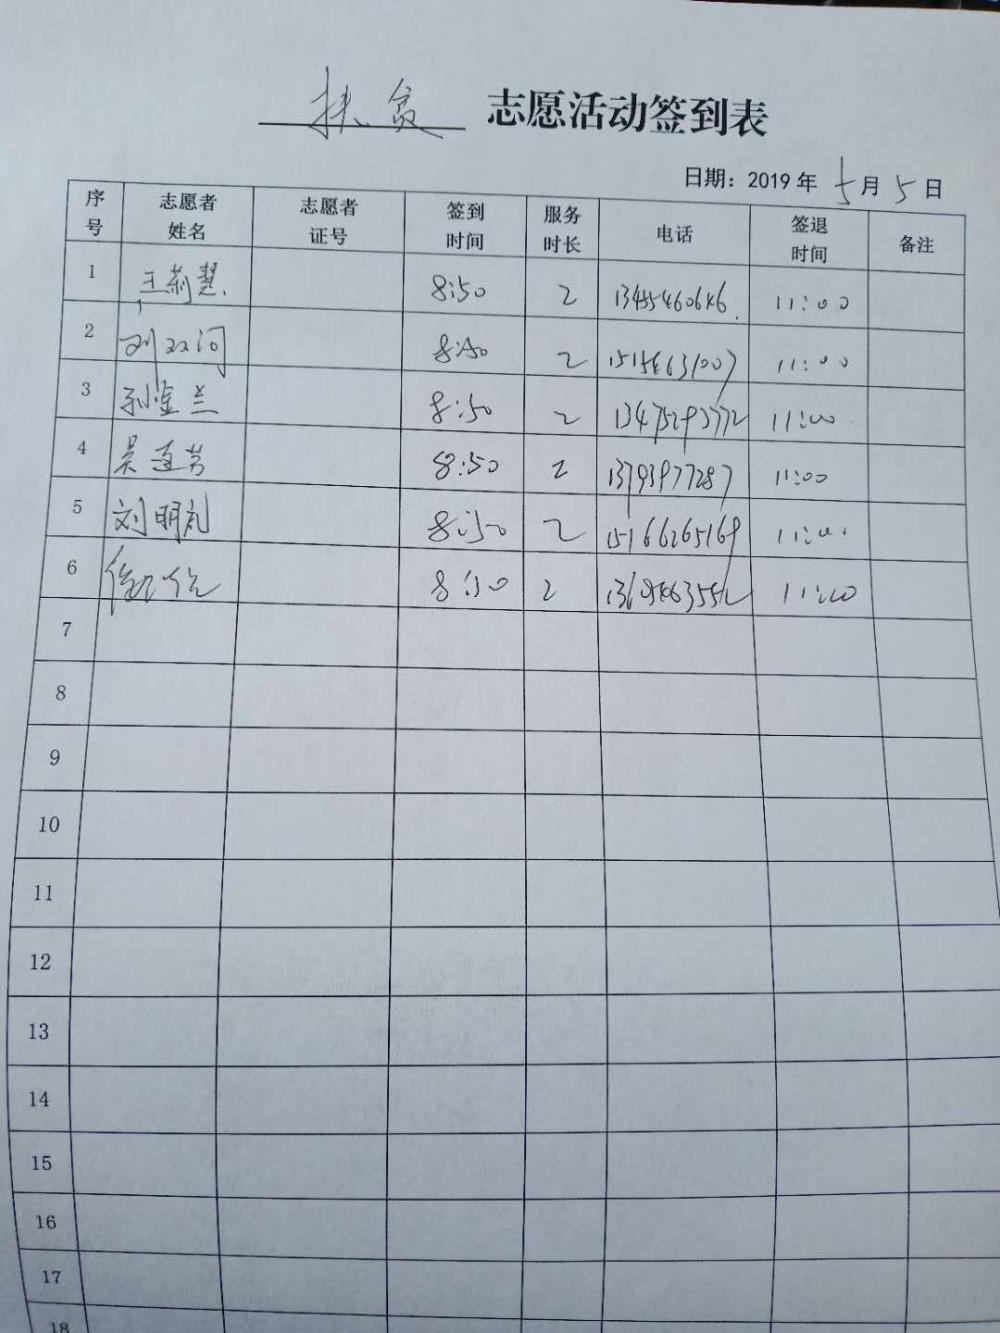 扶贫 志愿活动签到表
日期：2019 年 5 月 5 日
序号 志愿者姓名 志愿者证号 签到时间 服务时长 电话 签退时间 备注
1 王莉慧 8:50 2 11:00
2 8:50 2 11:00
3 孙金兰 8:50 2 11:00
4 8:50 2 13793977287 11:00
5 刘明礼 8:50 2 15166265169 11:00
6 8:50 2 11:00
7
8
9
10
11
12
13
14
15
16
17
18